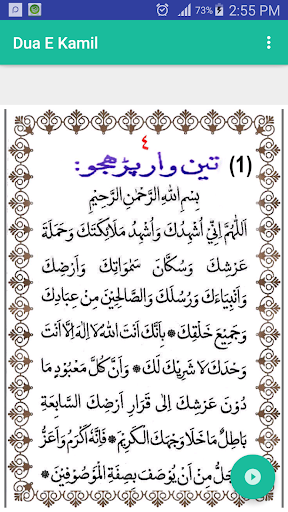 73% 2:55 PM
Dua E Kamil
٤
(1) تين وار پڑهجو:
بِسْمِ اللهِ الرَّحْمٰنِ الرَّحِيْمِ
اَللّٰهُمَّ اِنِّيْ اُشْهِدُكَ وَاُشْهِدُ مَلَائِكَتَكَ وَحَمَلَةَ
عَرْشِكَ وَسُكَّانَ سَمٰوَاتِكَ وَاَرْضِكَ
وَاَنْبِيَاءَكَ وَرُسُلَكَ وَالصَّالِحِيْنَ مِنْ عِبَادِكَ
وَجَمِيْعَ خَلْقِكَ * بِاَنَّكَ اَنْتَ اللهُ لَا اِلٰهَ اِلَّا اَنْتَ
وَحْدَكَ لَا شَرِيْكَ لَكَ * وَاَنَّ كُلَّ مَعْبُوْدٍ مَا
دُوْنَ عَرْشِكَ اِلٰى قَرَارِ اَرْضِكَ السَّابِعَةِ
بَاطِلٌ مَا خَلَا وَجْهَكَ الْكَرِيْمَ * فَاِنَّهُ اَكْرَمُ وَاَعَزُّ
مِنْ اَنْ يُوْصَفَ بِصِفَةِ الْمَوْصُوْفِيْنَ *